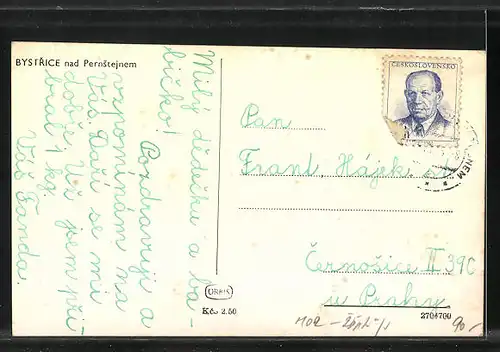 BYSTŘICE nad Pernštejnem
Milý dědečku a ba-
bičko!
Pozdravuji a
vzpomínám na
Vás. Daří se mi
dobře. Už jsem při-
bral 1 kg.
Váš Fanda.
ČESKOSLOVENSKO
NEM
Pan
Frant. Hájek
Černošice II 390
u Prahy
ORBIS
Kčs 2.50
2704700
90,-